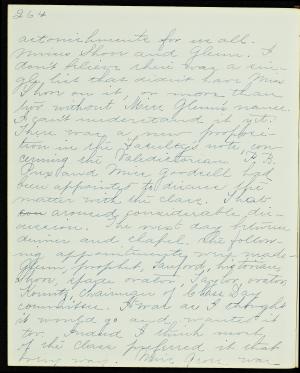 264
astonishments for us all.
Minus Shon and Glenn. I
don't believe there was a sin-
gle list that didn't have Miss
Shon on it, or more than
two without Miss Glenn's name.
I can't understand it yet.
There was a new proposi-
tion in the Faculty's note con-
cerning the Valedictorian. R. B.
and Miss Goodrell had
been appointed to discuss the
matter with the class. That
aroused considerable dis-
cussion. The next day between
dinner and chapel. the follow-
ing appointments were made-
Glenn, prophet, Sanford, historian,
Shon, spade orator, Taylor, orator,
Kountz, Chairman of Class Day
Committee. It was as I thought
it would go and wanted it
to. Indeed I think most
of the class preferred it that
way. Miss was